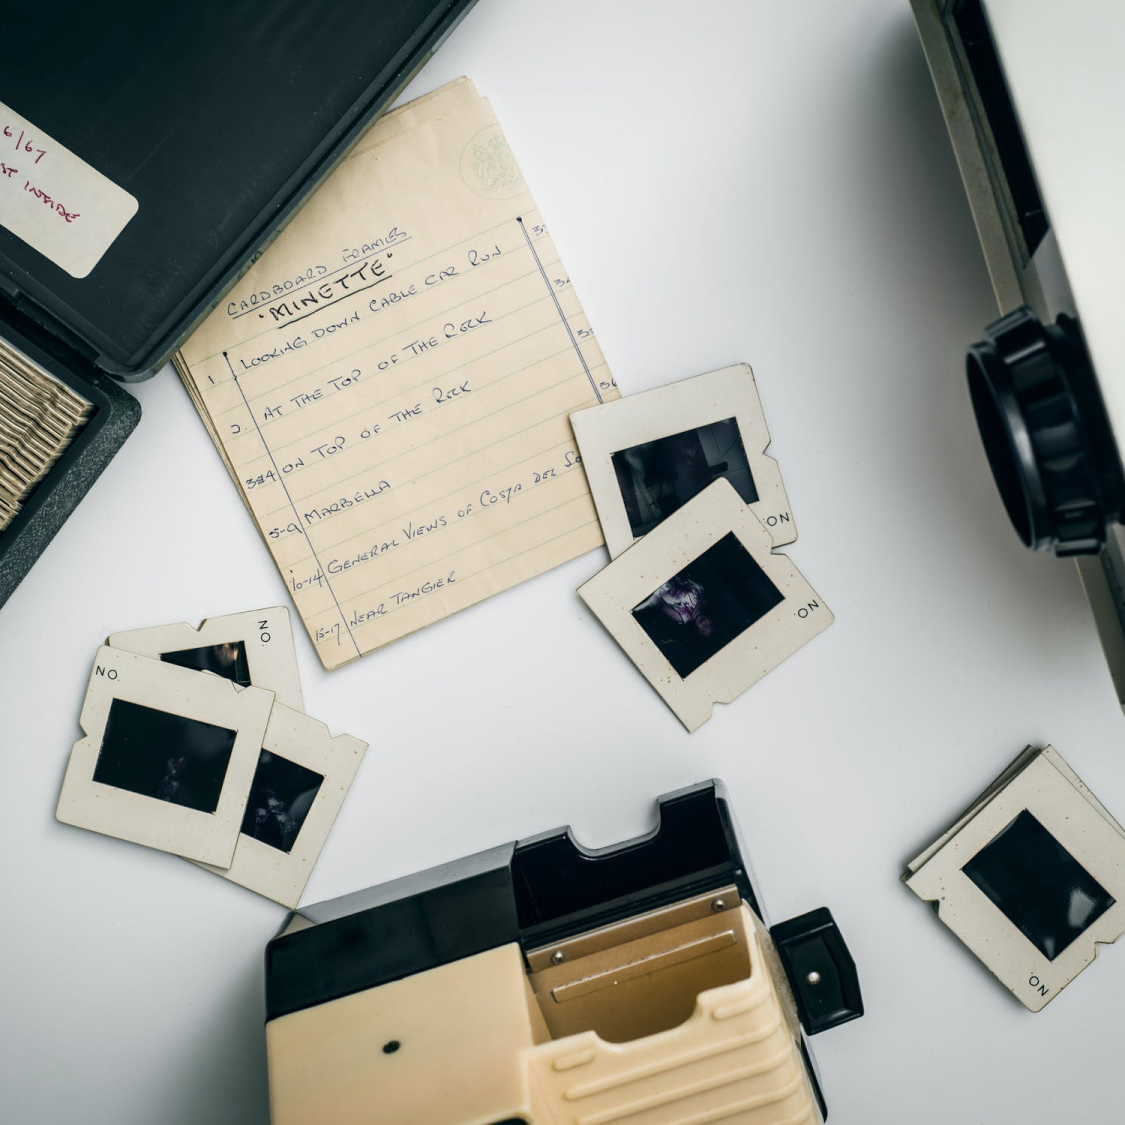 6/67
INSIDE
CARDBOARD FRAMES
"MINETTE"
1. LOOKING DOWN CABLE CAR RUN
2. AT THE TOP OF THE ROCK
3&4 ON TOP OF THE ROCK
5-9 MARBELLA
10-14 GENERAL VIEWS OF COSTA DEL
15-17 NEAR TANGIER
NO.
NO.
NO
NO
NO